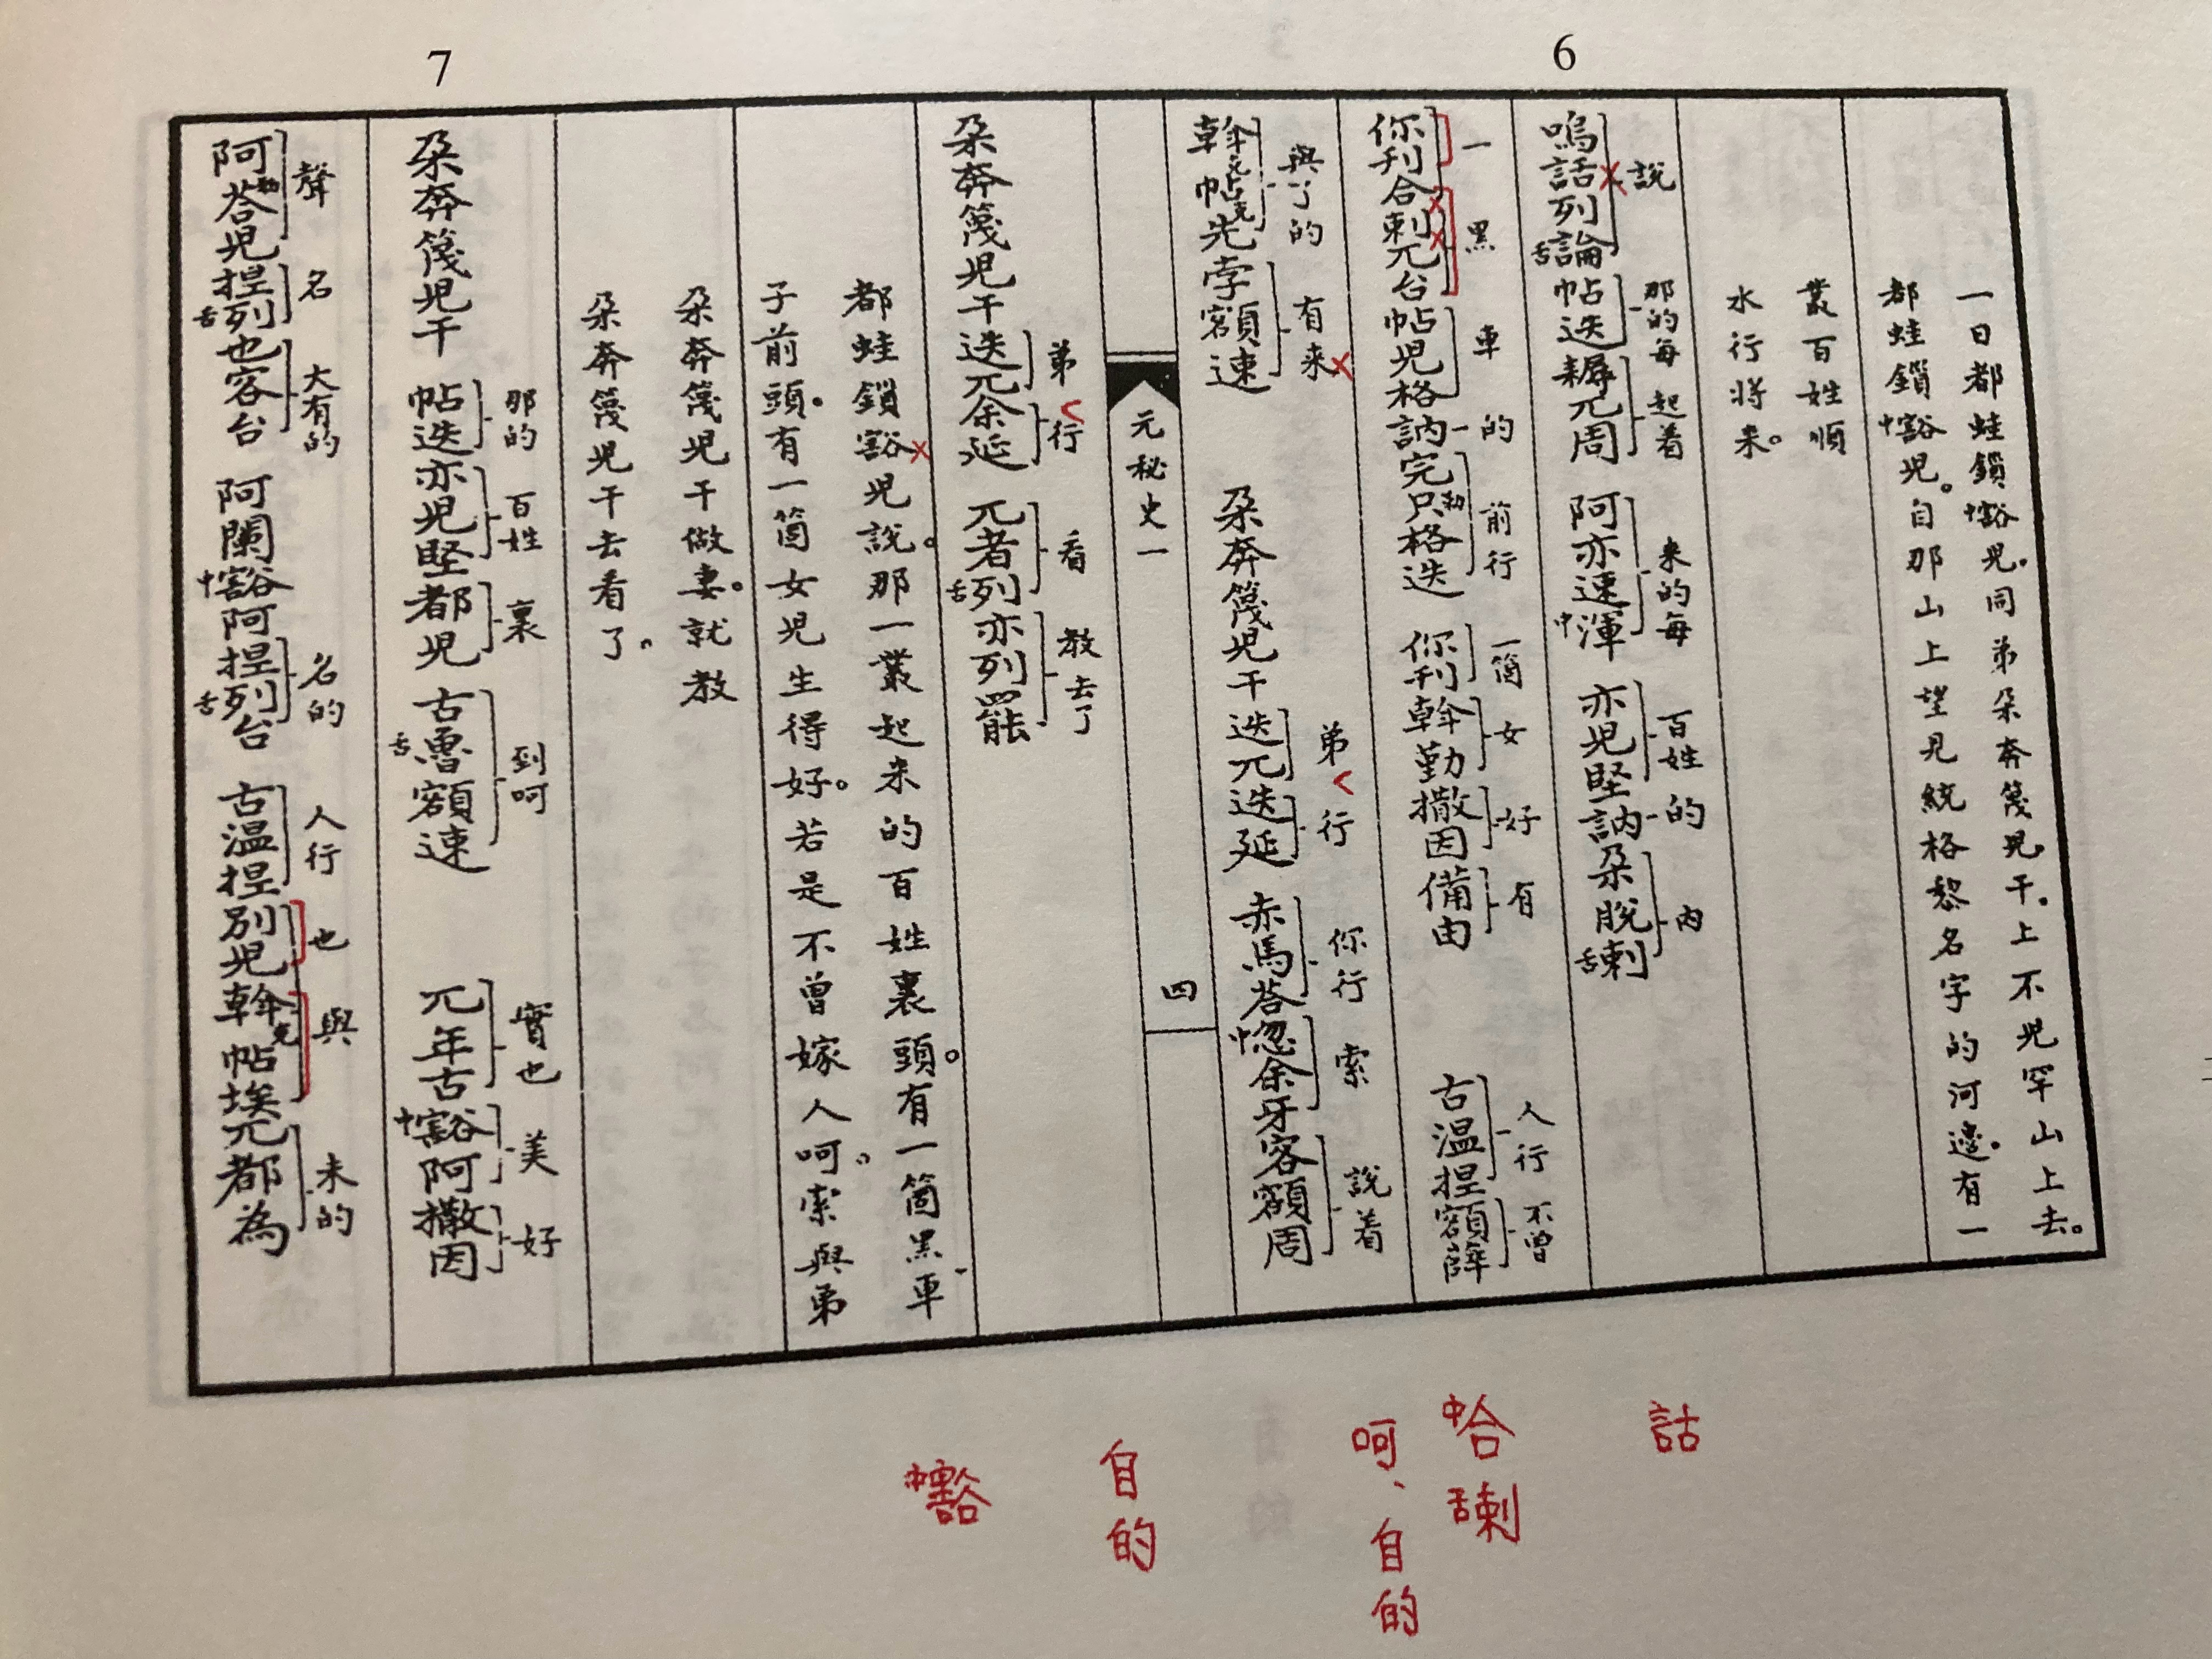 6
7
一日都蛙鎖中豁児。同弟朵奔篾児干。上不児罕山上去。
都蛙鎖中豁児。自那山上望見統格黎名字的河邊。有一
叢百姓順
水行將来。
說 那的每 起着 来的每 百姓 的 內
嗚話列舌論 帖迭 耨兀周 阿亦速中渾 亦児堅訥 朵脫舌剌
一 黑 車 的 前行 一箇 女 好 有 人行 不曾
你刊合剌兀台帖児格訥完只勒格迭 你刊斡勤撒因備由 古温捏額薛
與了的 有来 弟行 你行 索 說着
斡克帖克先孛額速 朵奔篾児干迭兀迭延 赤馬荅中忽余牙客額周
元秘史一 四
弟行 看 教去了
朵奔篾児干迭兀余延 兀者舌列亦列罷
都蛙鎖豁児說。那一叢起来的百姓裏頭。有一箇黑車
子前頭。有一箇女児生得好。若是不曾嫁人呵。索與弟
朵奔篾児干做妻。就教
朵奔篾児干去看了。
那的 百姓 裏 到呵 實也 美 好
朵奔篾児干 帖迭亦児堅都児 古舌魯額速 兀年古中豁阿撒因
聲 名 大有的 名的 人行 也 與 未的
阿勒荅児捏舌列也客台 阿闌中豁阿捏舌列台 古温捏別児斡克帖埃兀都為
詁
中合舌剌
呵、自的
自的
中豁